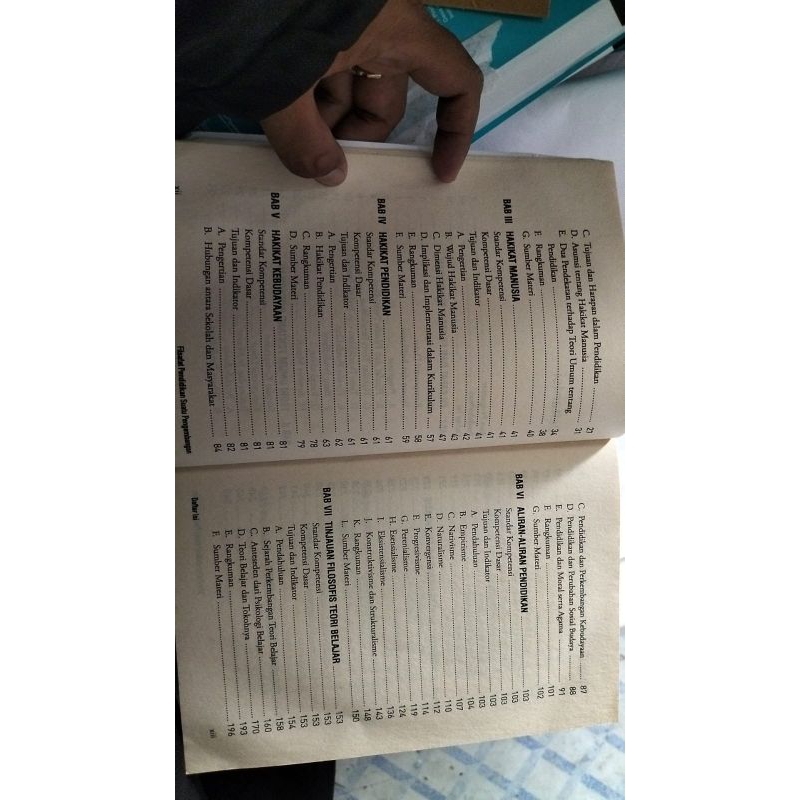 C. Tujuan dan Harapan dalam Pendidikan 21
D. Asumsi tentang Hakikat Manusia 31
E. Dua Pendekatan terhadap Teori Umum tentang
Pendidikan 34
F. Rangkuman 38
G. Sumber Materi 40
BAB III HAKIKAT MANUSIA 41
Standar Kompetensi 41
Kompetensi Dasar 41
Tujuan dan Indikator 41
A. Pengertian 42
B. Wujud Hakikat Manusia 43
C. Dimensi Hakikat Manusia 47
D. Implikasi dan Implementasi dalam Kurikulum 57
E. Rangkuman 58
F. Sumber Materi 59
BAB IV HAKIKAT PENDIDIKAN 61
Standar Kompetensi 61
Kompetensi Dasar 61
Tujuan dan Indikator 61
A. Pengertian 62
B. Hakikat Pendidikan 63
C. Rangkuman 78
D. Sumber Materi 79
BAB V HAKIKAT KEBUDAYAAN 81
Standar Kompetensi 81
Kompetensi Dasar 81
Tujuan dan Indikator 81
A. Pengertian 82
B. Hubungan antara Sekolah dan Masyarakat 84
xii Filsafat Pendidikan Suatu Pengembangan
C. Pendidikan dan Perkembangan Kebudayaan 87
D. Pendidikan dan Perubahan Sosial Budaya 88
E. Pendidikan dan Moral serta Agama 91
F. Rangkuman 101
G. Sumber Materi 102
BAB VI ALIRAN-ALIRAN PENDIDIKAN 103
Standar Kompetensi 103
Kompetensi Dasar 103
Tujuan dan Indikator 103
A. Pendahuluan 104
B. Empirisme 107
C. Nativisme 110
D. Naturalisme 112
E. Konvergensi 114
F. Progresivisme 119
G. Perenialisme 124
H. Esensialisme 136
I. Eksistensialisme 143
J. Konstruktivisme dan Strukturalisme 148
K. Rangkuman 150
L. Sumber Materi
BAB VII TINJAUAN FILOSOFIS TEORI BELAJAR 153
Standar Kompetensi 153
Kompetensi Dasar 153
Tujuan dan Indikator 154
A. Pendahuluan 158
B. Sejarah Perkembangan Teori Belajar 160
C. Anteseden dari Psikologi Belajar 170
D. Teori Belajar dan Tokohnya 193
E. Rangkuman 196
F. Sumber Materi
Daftar Isi xiii